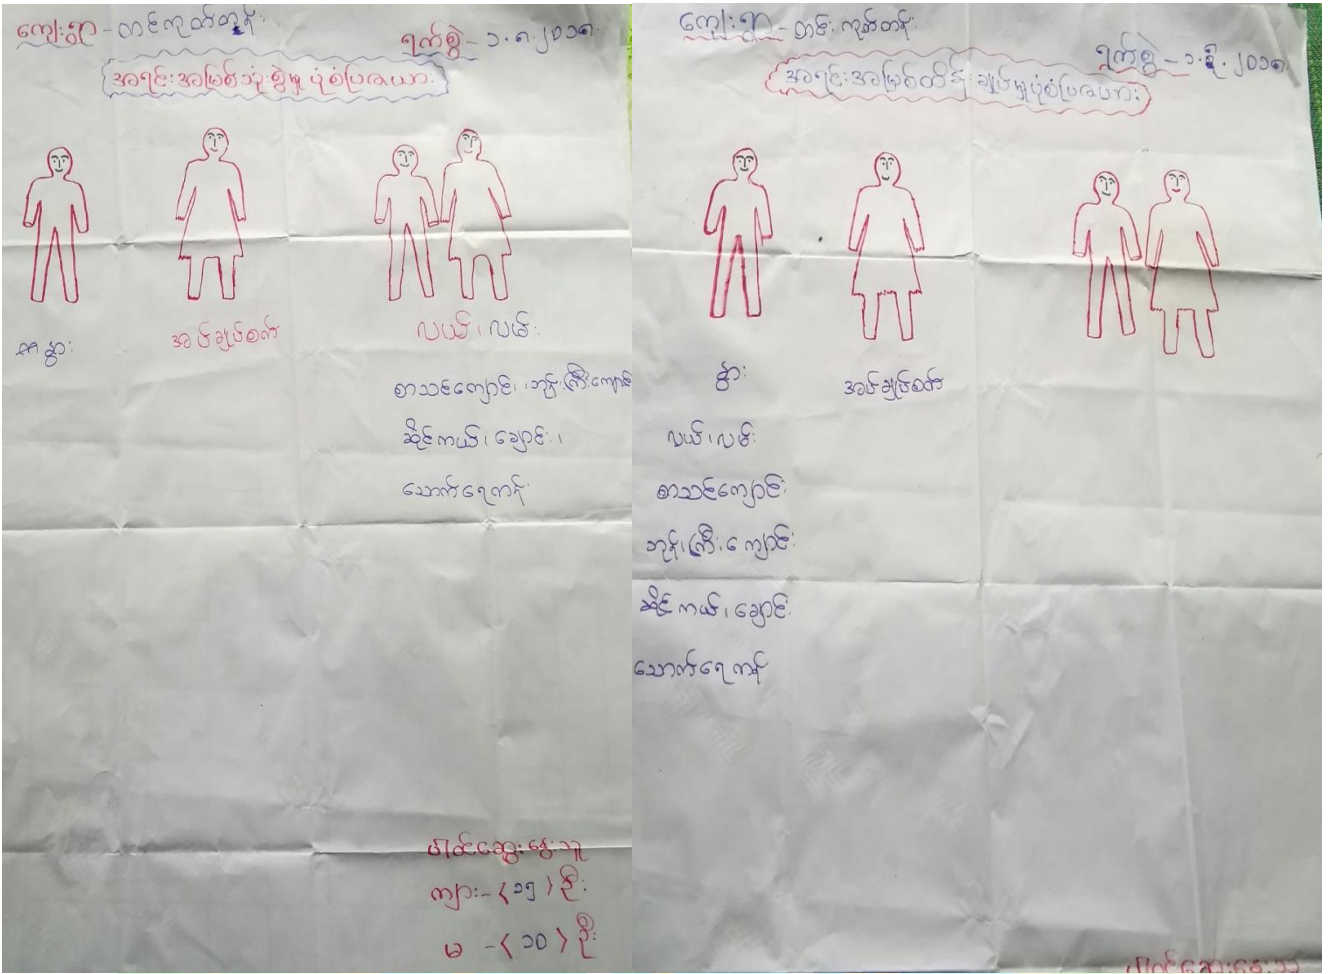 ကျေးရွာ - တင်ကုတ်တန်း
ရက်စွဲ - ၁.၈.၂၀၁၈
အရင်းအမြစ်သုံးစွဲမှု ပုံစံပြဇယား
နွား
အပ်ချုပ်စက်
လယ်၊ လမ်း
စာသင်ကျောင်း၊ ဘုန်းကြီးကျောင်း
ဆိုင်ကယ်၊ ချောင်း၊
သောက်ရေကန်
ပါဝင်ဆွေးနွေးသူ
ကျား - (၁၅) ဦး
မ - (၁၀) ဦး
ကျေးရွာ - တင်းကုတ်တန်း
ရက်စွဲ - ၁.၈.၂၀၁၈
အရင်းအမြစ်ထိန်းချုပ်မှုပုံစံပြဇယား
နွား
အပ်ချုပ်စက်
လယ်၊ လမ်း
စာသင်ကျောင်း
ဘုန်းကြီးကျောင်း
ဆိုင်ကယ်၊ ချောင်း
သောက်ရေကန်
ပါဝင်ဆွေးနွေးသူ